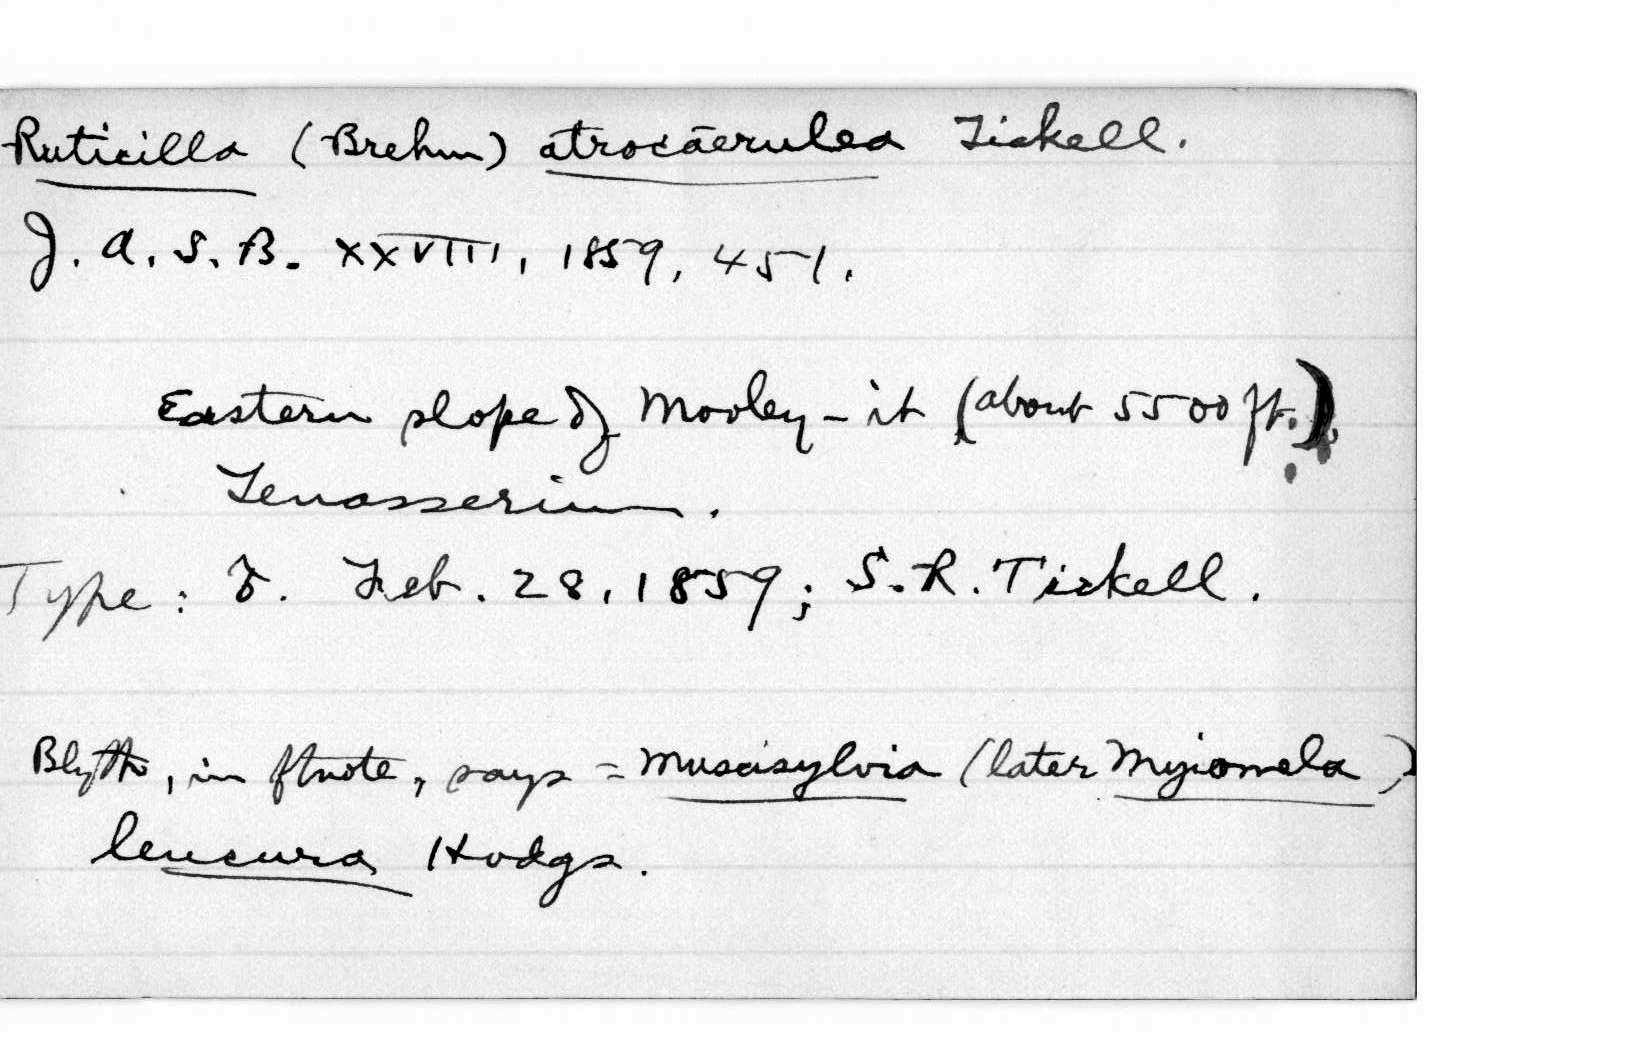 Ruticilla (Brehm) atrocaerulea Tickell.
J. A. S. B. XXVIII, 1859, 451.
Eastern slope of Mooley-it (about 5500 ft.),
Tenasserim.
Type: ♂. Feb. 28, 1859; S. R. Tickell.
Blyth, in ftnote, says = Muscisylvia (later Myiomela)
leucura Hodgs.